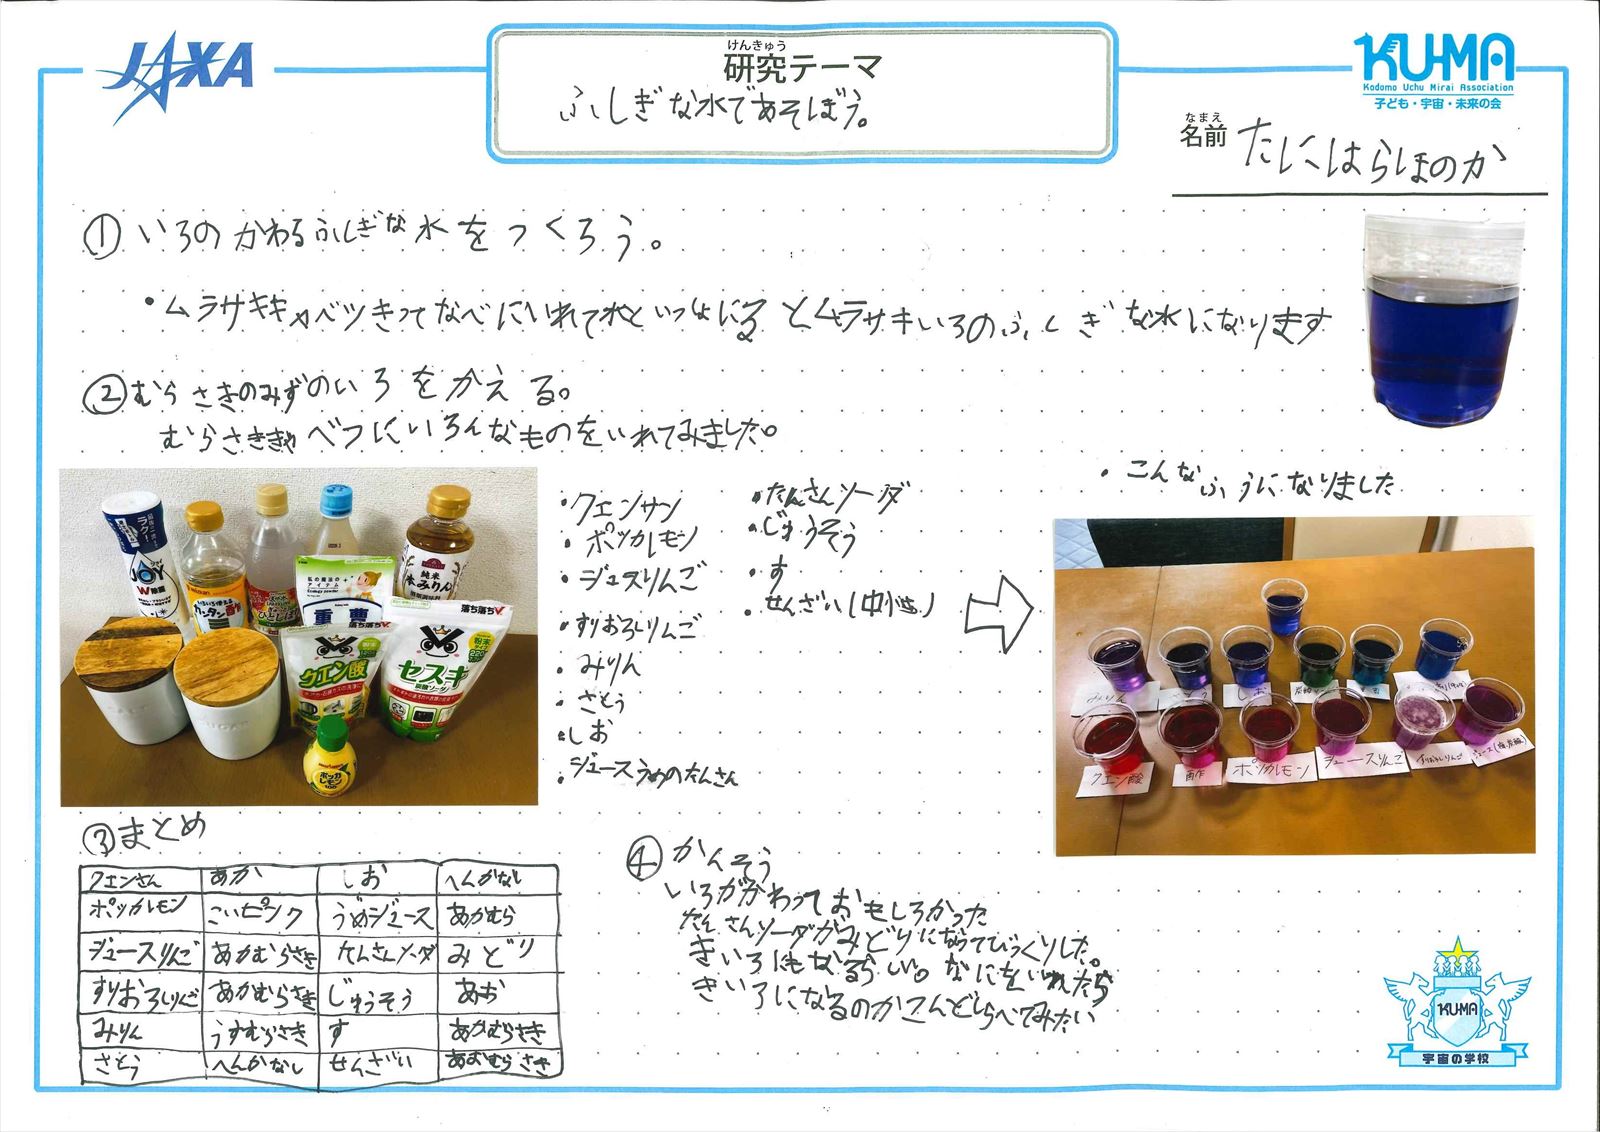 JAXA
けんきゅう
研究テーマ
ふしぎな水であそぼう。
KU-MA
Kodomo Uchu Mirai Association
子ども・宇宙・未来の会
なまえ
名前 たにはらほのか
① いろのかわるふしぎな水をつくろう。
・ムラサキキャベツきってなべにいれて水といっしょににると ムラサキいろのふしぎな水になります
② むらさきのみずのいろをかえる。
むらさききゃべつにいろんなものをいれてみました。
・クエンサン
・ポッカレモン
・ジュースりんご
・すりおろしりんご
・みりん
・さとう
・しお
・ジュースうめのたんさん
・たんさんソーダ
・じゅうそう
・す
・せんざい(中性)
・こんなふうになりました
JOY
W除菌
カンタン酢
純米
本みりん
重曹
落ち落ちV
クエン酸
セスキ
炭酸ソーダ
粉末
SALT
SUGAR
ポッカレモン
100
みりん
さとう
しお
クエン酸
酢
ポッカレモン
ジュースりんご
すりおろしりんご
③ まとめ
クエンさん あか しお へんかなし
ポッカレモン こいピンク うめジュース あかむら
ジュースりんご あかむらさき たんさんソーダ みどり
すりおろしりんご あかむらさき じゅうそう あお
みりん うすむらさき す あかむらさき
さとう へんかなし せんざい あおむらさき
④ かんそう
いろがかわっておもしろかった
たんさんソーダがみどりになってびっくりした。
きいろにもなるらしい。なにをいれたら
きいろになるのかこんどしらべてみたい
KUMA
宇宙の学校